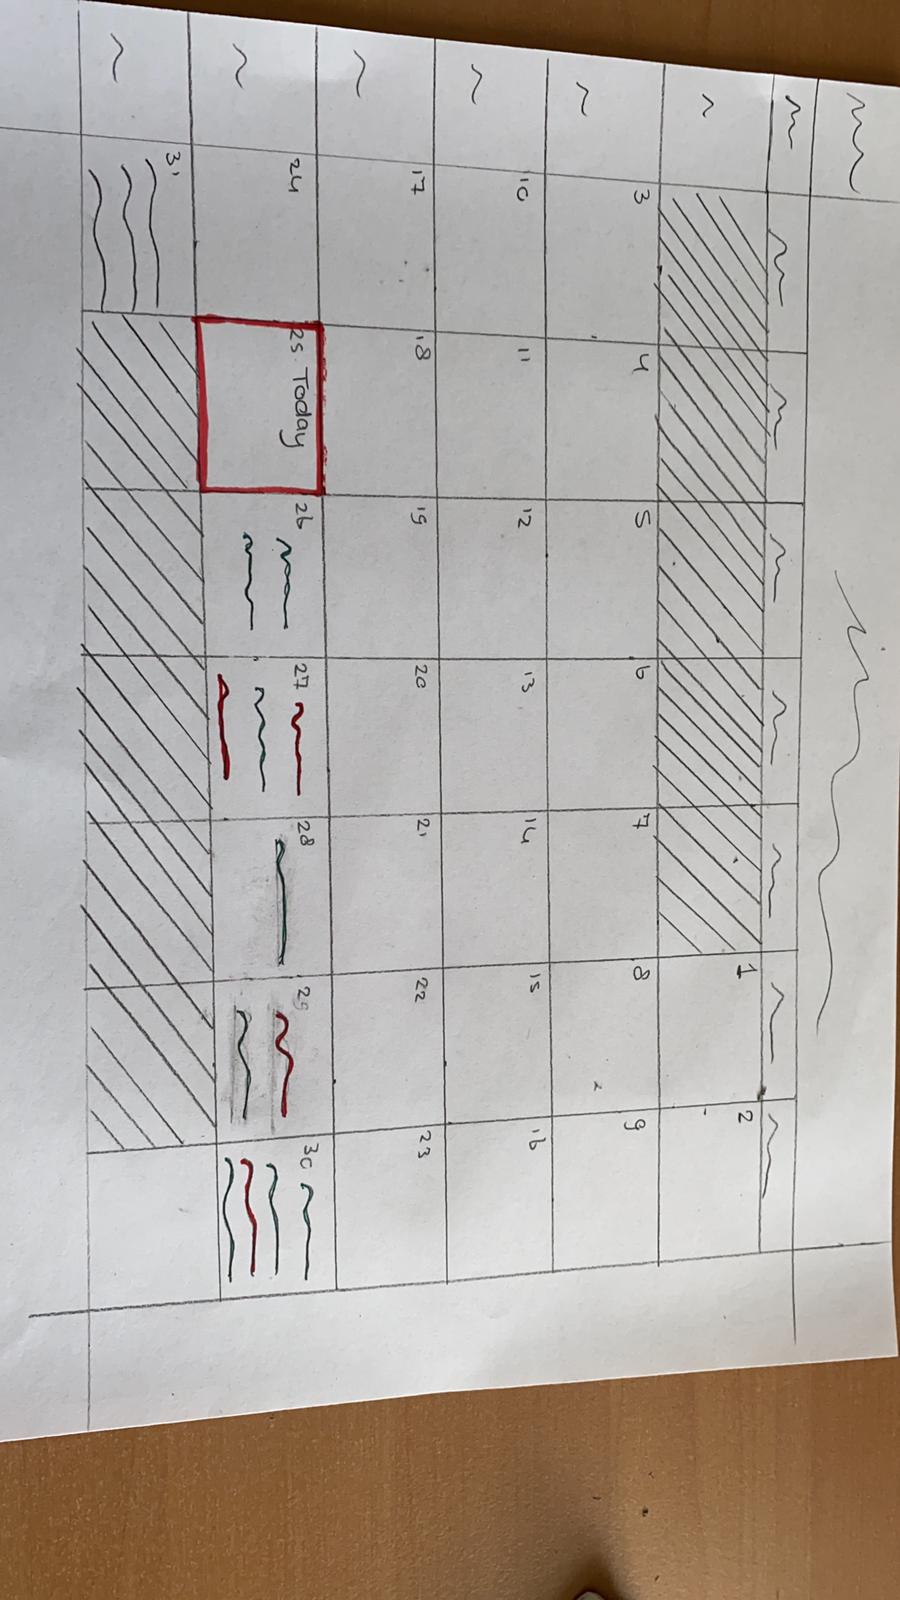 1 2
3 4 5 6 7 8 9
10 11 12 13 14 15 16
17 18 19 20 21 22 23
24 25. Today 26 27 28 29 30
31